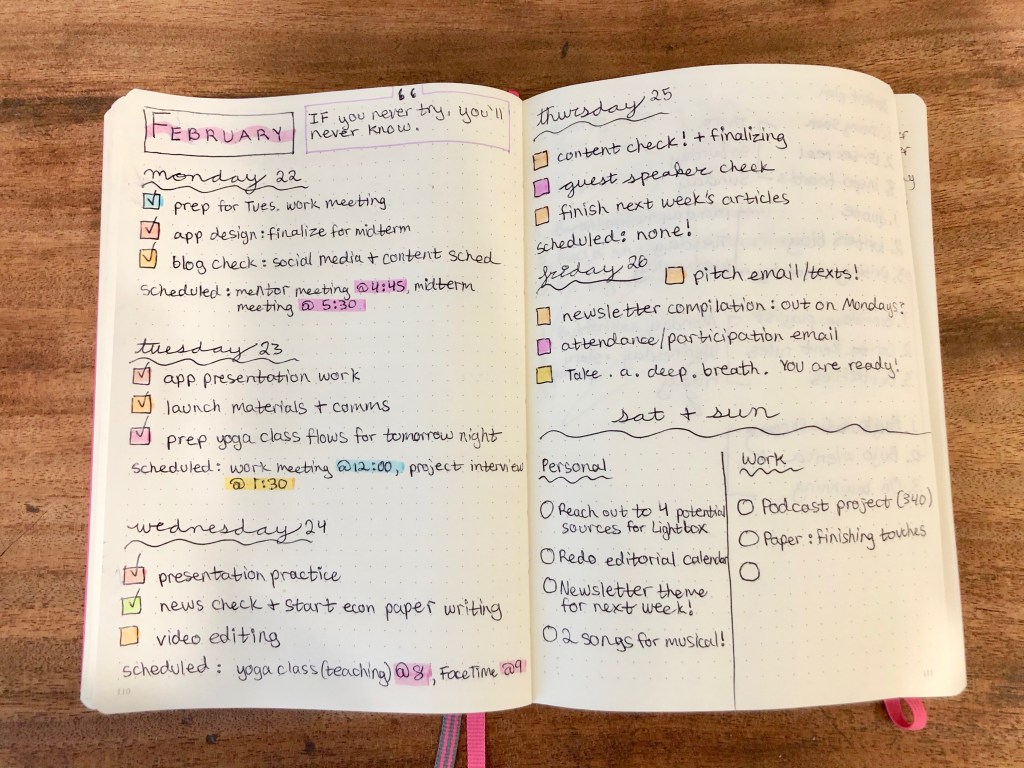 FEBRUARY
“
IF you never try, you'll
never know.
monday 22
prep for Tues. work meeting
app design: finalize for midterm
blog check: social media + content sched
scheduled: mentor meeting @4:45, midterm
meeting @ 5:30
tuesday 23
app presentation work
launch materials + comms
prep yoga class flows for tomorrow night
scheduled: work meeting @12:00, project interview
@ 1:30
wednesday 24
presentation practice
news check + start econ paper writing
video editing
scheduled: yoga class (teaching) @8, FaceTime @9
110
thursday 25
content check! + finalizing
guest speaker check
finish next week's articles
scheduled: none!
friday 26
pitch email/texts!
newsletter compilation: out on Mondays?
attendance/participation email
Take. a. deep. breath. You are ready!
sat + sun
Personal
Reach out to 4 potential
sources for Lightbox
Redo editorial calendar
Newsletter theme
for next week!
2 songs for musical!
Work
Podcast project (340)
Paper: finishing touches
111